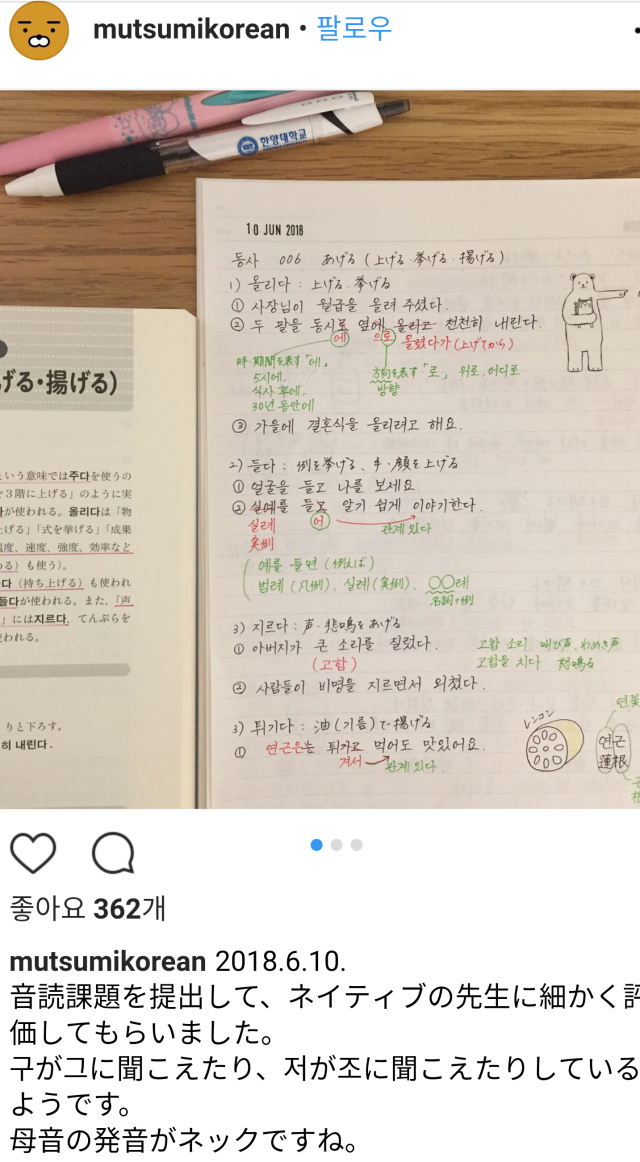 mutsumikorean • 팔로우
한양대학교
10 JUN 2018
동사 006 あげる (上げる・挙げる・揚げる)
1) 올리다 : 上げる・挙げる
① 사장님이 월급을 올려 주셨다.
② 두 팔을 동시로 옆에 올리고 천천히 내린다.
에 으로 올렸다가 (上げてから)
時・期間を表す「에」
5시에,
식사 후에,
30년 동안에
方向を表す「로」 위로, 어디로
방향
③ 가을에 결혼식을 올리려고 해요.
2) 들다 : 例を挙げる、手・顔を上げる
① 얼굴을 들고 나를 보세요.
② 실예를 들고 알기 쉽게 이야기한다.
실례 어 관계 있다
実例
예를 들면 (例えば)
범례 (凡例)、실례 (実例)、○○례
名詞+例
3) 지르다 : 声・悲鳴をあげる
① 아버지가 큰 소리를 질렀다.
(고함)
고함 소리 叫び声、わめき声
고함을 치다 怒鳴る
② 사람들이 비명을 지르면서 외쳤다.
3) 튀기다 : 油 (기름) で揚げる
① 연근은는 튀기고 먹어도 맛있어요.
겨서 관계 있다.
レンコン
연근
蓮根
연꽃
げる・揚げる)
という意味では주다を使うの
３階に上げる」のように実
が使われる。올리다は「物
げる」「式を挙げる」「成果
温度、速度、強度、効率など
る）も使う）。
다（持ち上げる）も使われ
들다が使われる。また、「声
」には지르다, てんぷらを
われる。
りと下ろす。
히 내린다.
좋아요 362개
mutsumikorean 2018.6.10.
音読課題を提出して、ネイティブの先生に細かく評
価してもらいました。
구が그に聞こえたり、저が조に聞こえたりしている
ようです。
母音の発音がネックですね。